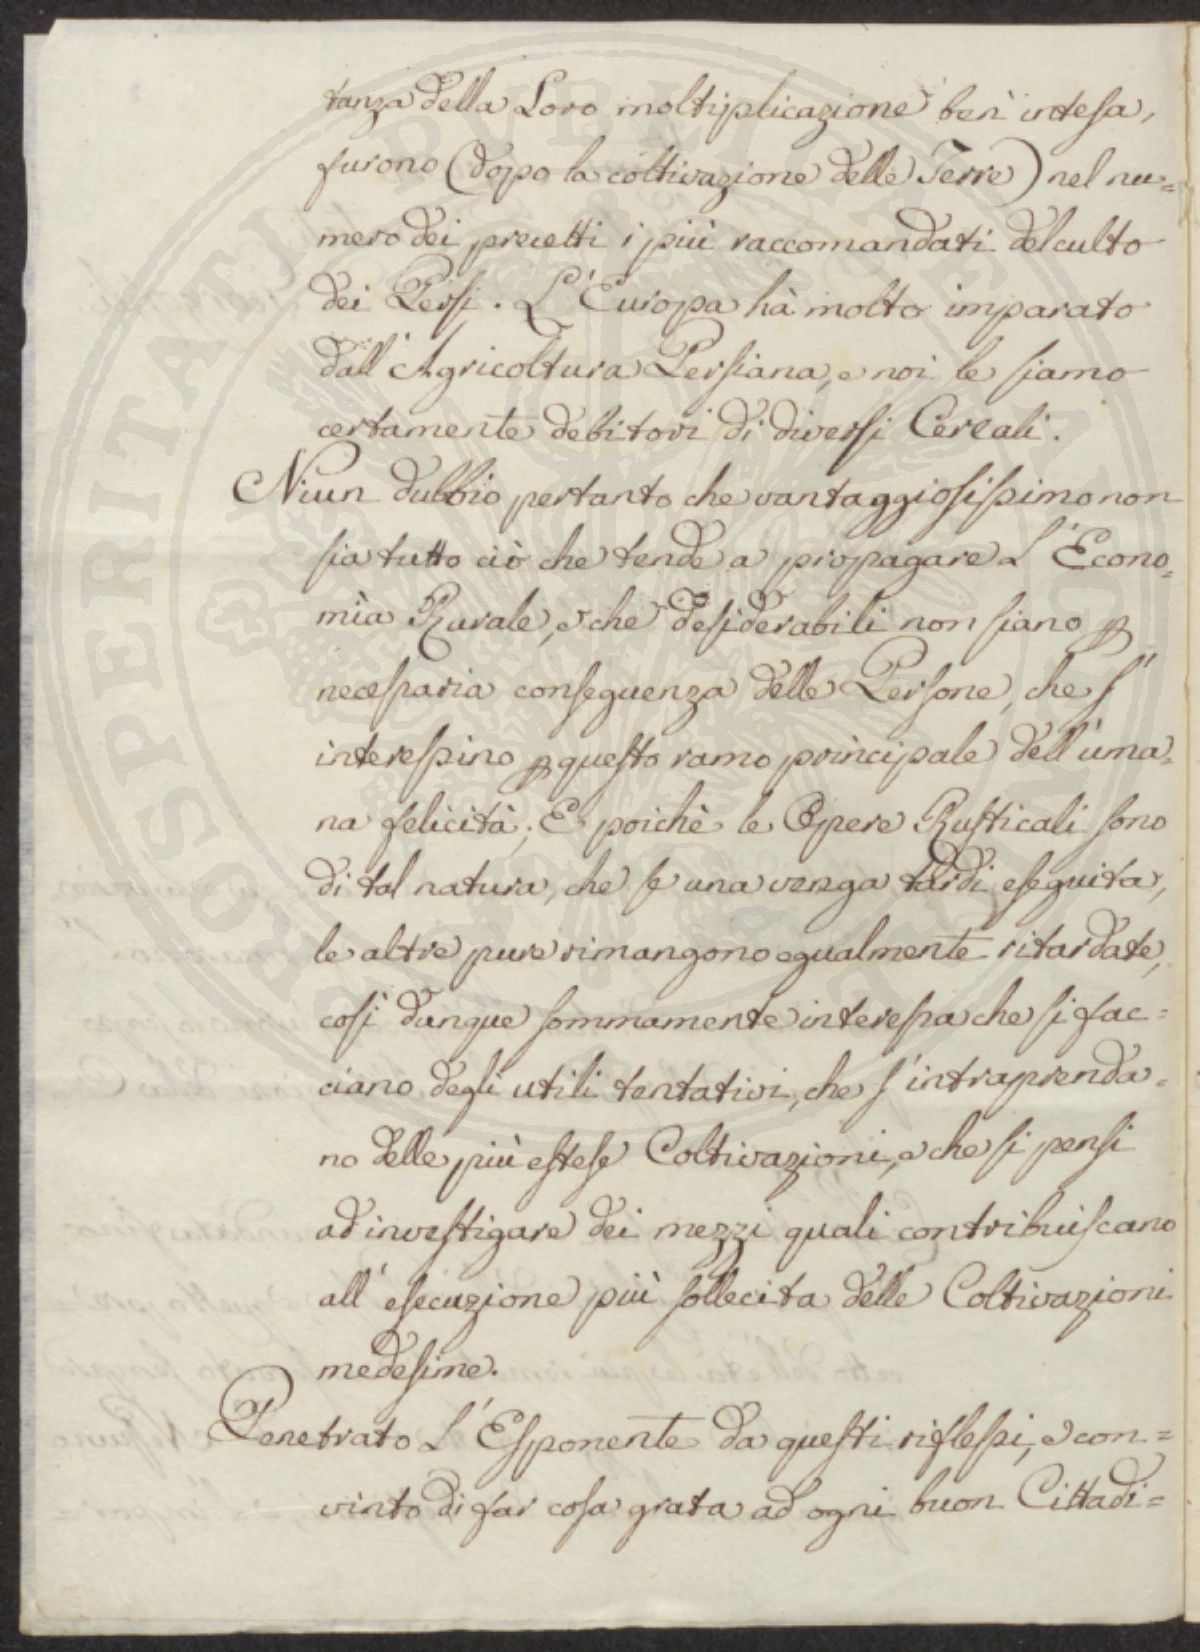 tanza della Loro moltiplicazione ben' intesa,
furono (dopo la coltivazione delle Terre) nel nu=
mero dei precetti i più raccomandati del culto
dei Persi. L'Europa hà molto imparato
dall'Agricoltura Persiana, e noi le siamo
certamente debitori di diversi Cereali.
Niun dubbio pertanto che vantaggiosissimo non
sia tutto ciò che tende a propagare L'Econo=
mìa Rurale, e che desiderabili non siano ꝑ
necessaria conseguenza delle Persone, che s'
interessino ꝑ questo ramo principale dell'uma=
na felicità; E poichè le Opere Rusticali sono
di tal natura, che se una venga tardi eseguita,
le altre pure rimangono egualmente ritardate,
così dunque sommamente interessa che si fac=
ciano degli utili tentativi, che s'intraprenda=
no delle più estese Coltivazioni, e che si pensi
ad investigare dei mezzi quali contribuiscano
all'esecuzione più sollecita delle Coltivazioni
medesime.
Penetrato L'Esponente da questi riflessi, e con=
vinto di far cosa grata ad ogni buon Cittadi=
PROSPERITATI PUBLICAE AUGENDAE